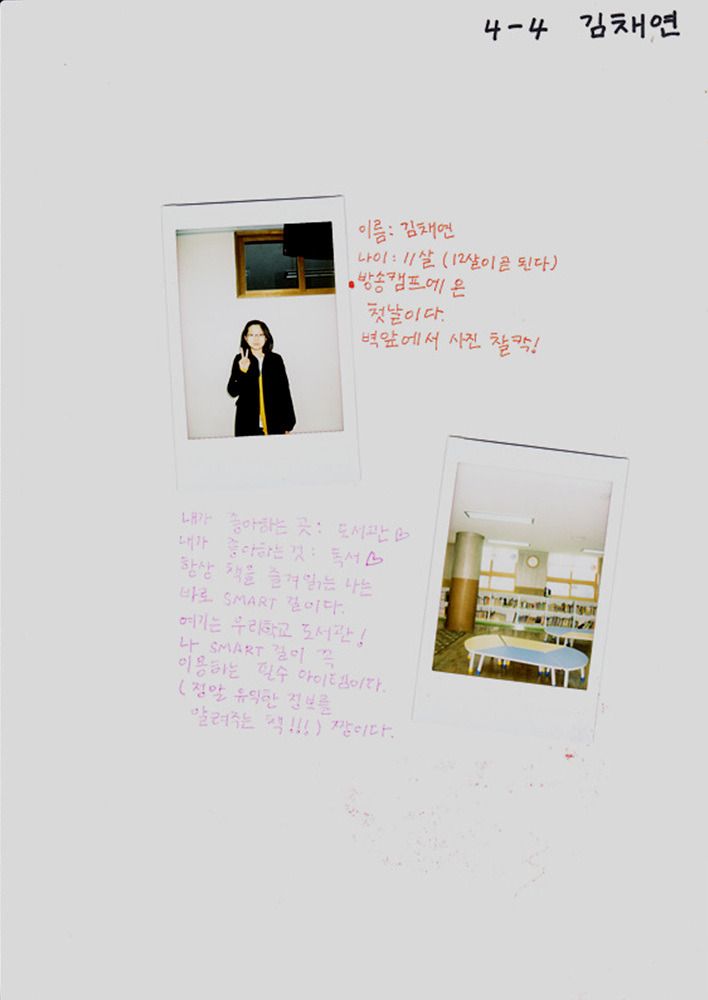 4-4 김채연
이름: 김채연
나이: 11살 (12살이 곧 된다)
방송캠프에 온
첫날이다.
벽앞에서 사진 찰칵!
내가 좋아하는 곳: 도서관♡
내가 좋아하는 것: 독서♡
항상 책을 즐겨읽는 나는
바로 SMART 걸이다.
여기는 우리학교 도서관!
나 SMART 걸이 꼭
이용하는 필수 아이템이다.
(정말 유익한 정보를
알려주는 책!!!) 짱이다.